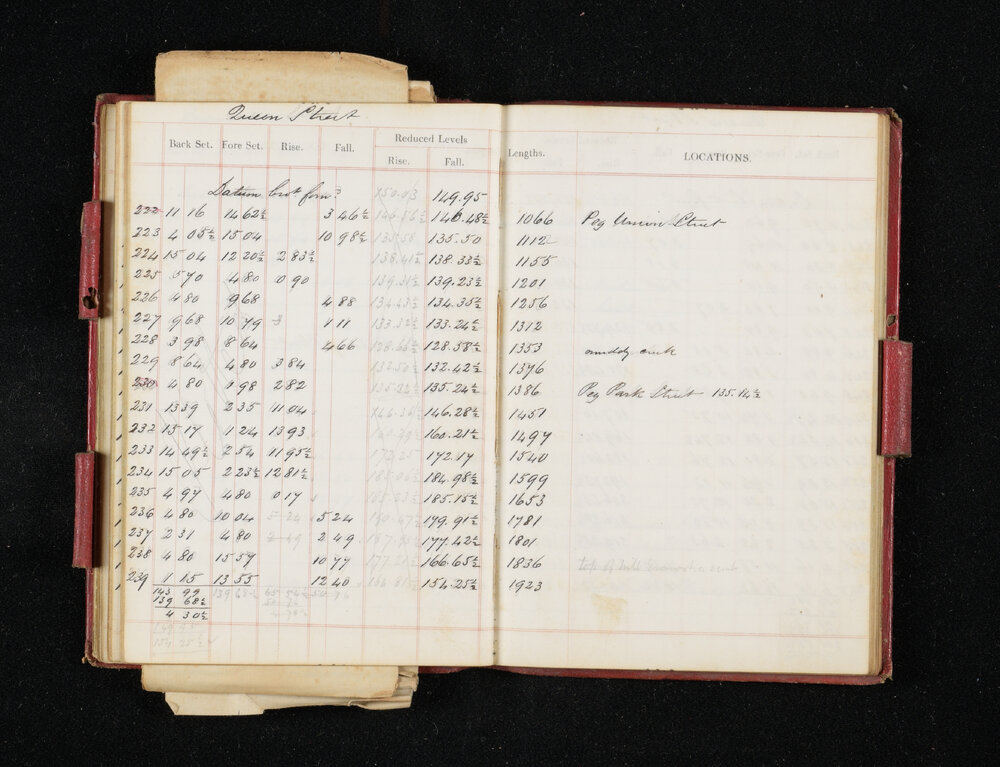 Queen Street
Back Set. Fore Set. Rise. Fall. Reduced Levels Rise. Fall. Lengths. LOCATIONS.
Datum 150.03 149.95
222 11 16 14 62½ 3 46½ 146.56½ 146.48½ 1066 Peg Union Street
223 4 05½ 15 04 10 98½ 135.58 135.50 1112
224 15 04 12 20½ 2 83½ 138.41½ 138.33½ 1155
225 5 70 4 80 0 90 139.31½ 139.23½ 1201
226 4 80 9 68 4 88 134.43½ 134.35½ 1256
227 9 68 10 79 1 11 133.32½ 133.24½ 1312
228 3 98 8 64 4 66 128.66½ 128.58½ 1353 muddy creek
229 8 64 4 80 3 84 132.50½ 132.42½ 1376
230 4 80 1 98 2 82 135.32½ 135.24½ 1386 Peg Park Street 135.14½
231 13 39 2 35 11 04 146.36½ 146.28½ 1451
232 15 17 1 24 13 93 160.29½ 160.21½ 1497
233 14 49½ 2 54 11 95½ 172.25 172.17 1540
234 15 05 2 23½ 12 81½ 185.06½ 184.98½ 1599
235 4 97 4 80 0 17 185.23½ 185.15½ 1653
236 4 80 10 04 5 24 5 24 179.91½ 1781
237 2 31 4 80 2 49 2 49 177.42½ 1801
238 4 80 15 57 10 77 166.65½ 1836 top of
239 1 15 13 55 12 40 154.25½ 1923
143 99 139 68½
139 68½
4 30½
154 25½